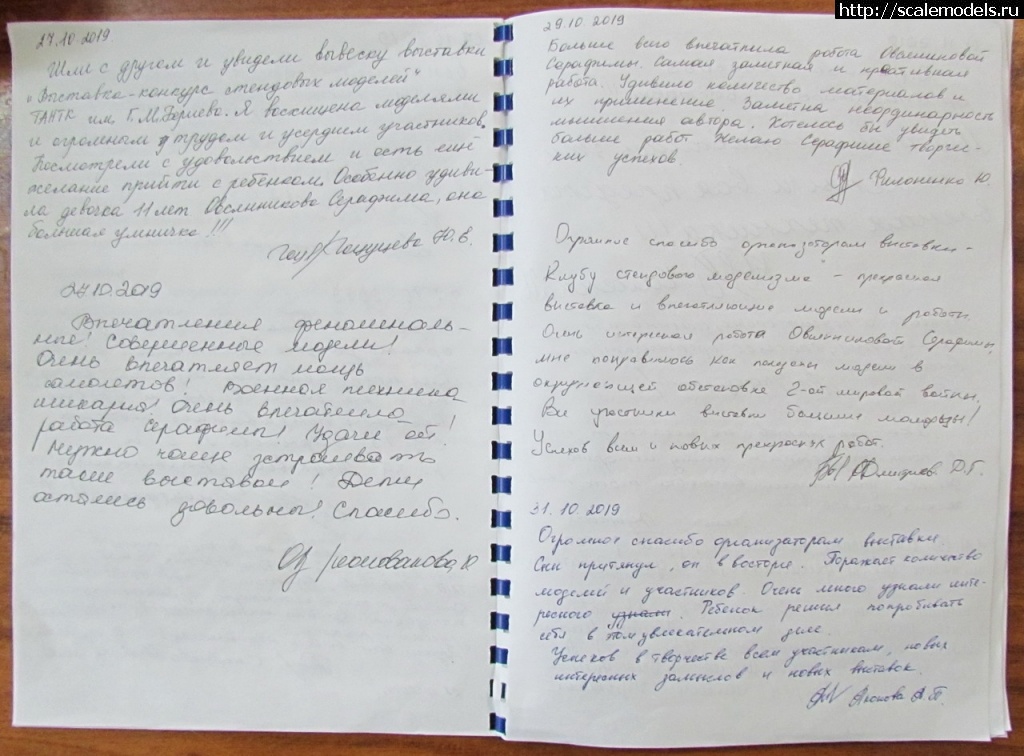 http://scalemodels.ru
27.10 2019.
Шли с другом и увидели вывеску выставки
"Выставка-конкурс стендовых моделей"
ТАНТК им. Г.М.Бериева. Я восхищена моделями
и огромным трудом и усердием участников.
Посмотрели с удовольствием и есть ещё
желание прийти с ребёнком. Особенно удиви-
ла девочка 11 лет Овсянникова Серафима, она
большая умничка!!!
Ю.В.
27.10.2019
Впечатления феноменаль-
ные! Совершенные модели!
Очень впечатляет мощь
самолетов! Военная техника
шикарна! Очень впечатлила
работа Серафимы! Удачи ей!
Нужно чаще устраивать
такие выставки! Дети
остались довольны! Спасибо.
29.10 2019
Больше всего впечатлила работа Овсянниковой
Серафимы. Самая заметная и креативная
работа. Удивило количество материалов и
их применение. Заметна неординарность
мышления автора. Хотелось бы увидеть
больше работ. Желаю Серафиме творчес-
ких успехов.
Филоненко Ю.
Огромное спасибо организаторам выставки -
Клубу стендового моделизма" - прекрасная
выставка и впечатляющие модели и работы.
Очень интересная работа Овсянниковой Серафимы,
мне понравилось как показаны модели в
окружающей обстановке 2-ой мировой войны.
Все участники выставки большие молодцы!
Успехов всем и новых прекрасных работ.
Дмитриев Д.Г.
31.10.2019
Огромное спасибо организаторам выставки.
Сын притянул, он в восторге. Поражает количество
моделей и участников. Очень много узнали инте-
ресного узнали. Ребенок решил попробовать
себя в этом увлекательном деле.
Успехов в творчестве всем участникам, новых
интересных замыслов и новых выставок.
А.П.